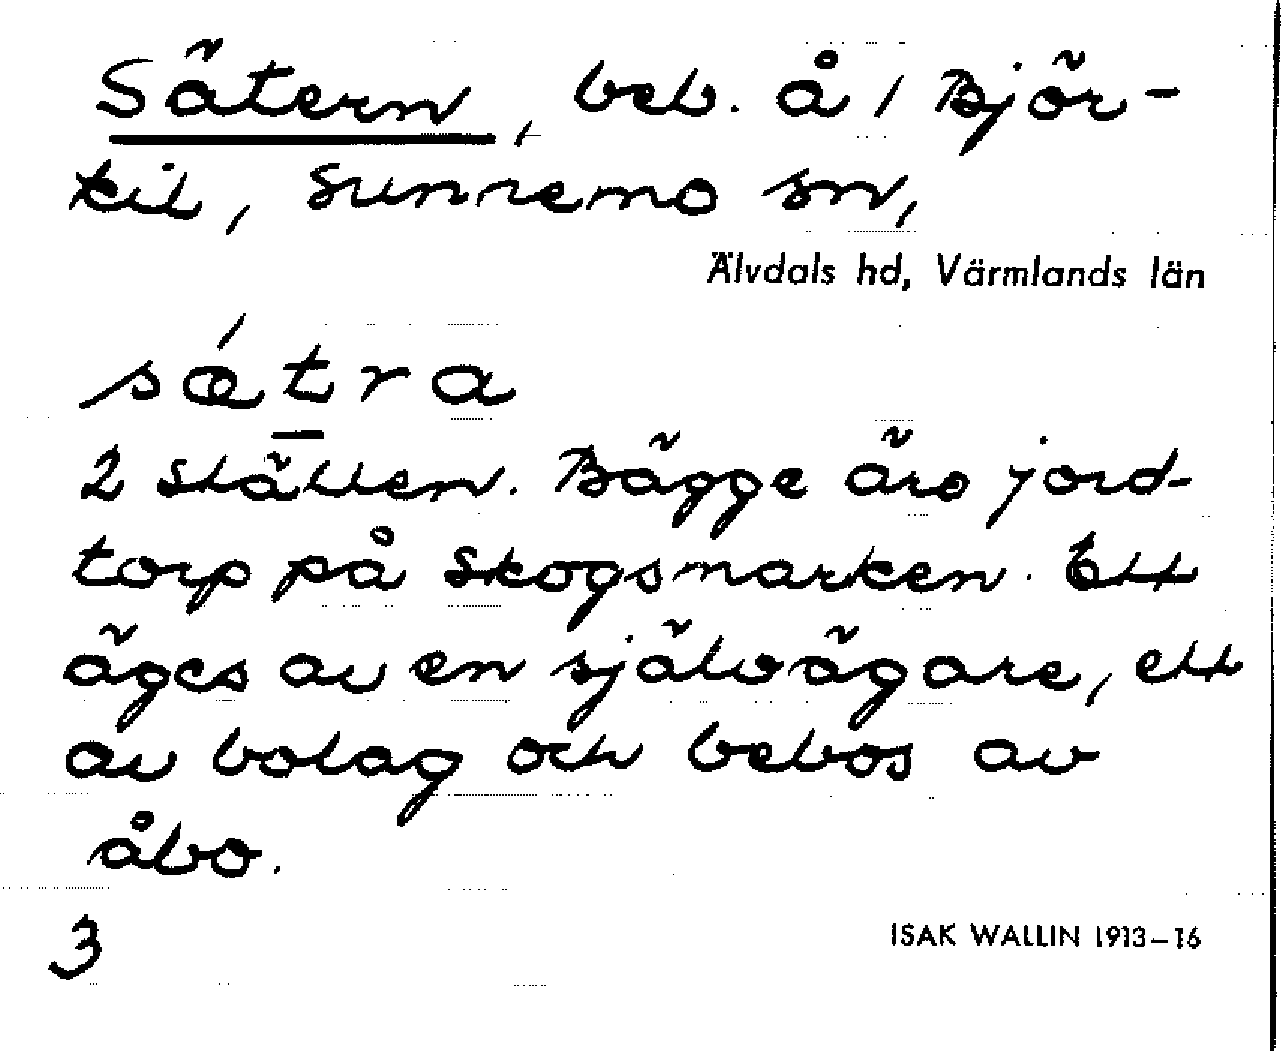 Sätern, beb. å 1 Björ-
kil, Sunnemo sn,
Älvdals hd, Värmlands län
sǽt̲ra
2 ställen. Bägge äro jord-
torp på skogsmarken. Ett
äges av en självägare, ett
av bolag och bebos av
åbo.
3
ISAK WALLIN 1913-16